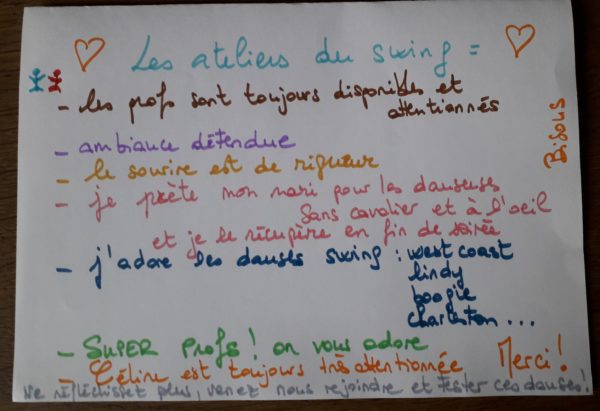 Les ateliers du swing =
- les profs sont toujours disponibles et
attentionnés
- ambiance détendue
- le sourire est de rigueur
- je prête mon mari pour les danseuses
sans cavalier et à l'oeil
et je le récupère en fin de soirée
- j'adore les danses swing : west coast
lindy
boogie
charleston ...
- SUPER Profs ! on vous adore
- Céline est toujours très attentionnée Merci !
Ne réfléchissez plus, venez nous rejoindre et tester ces danses !
Bisous